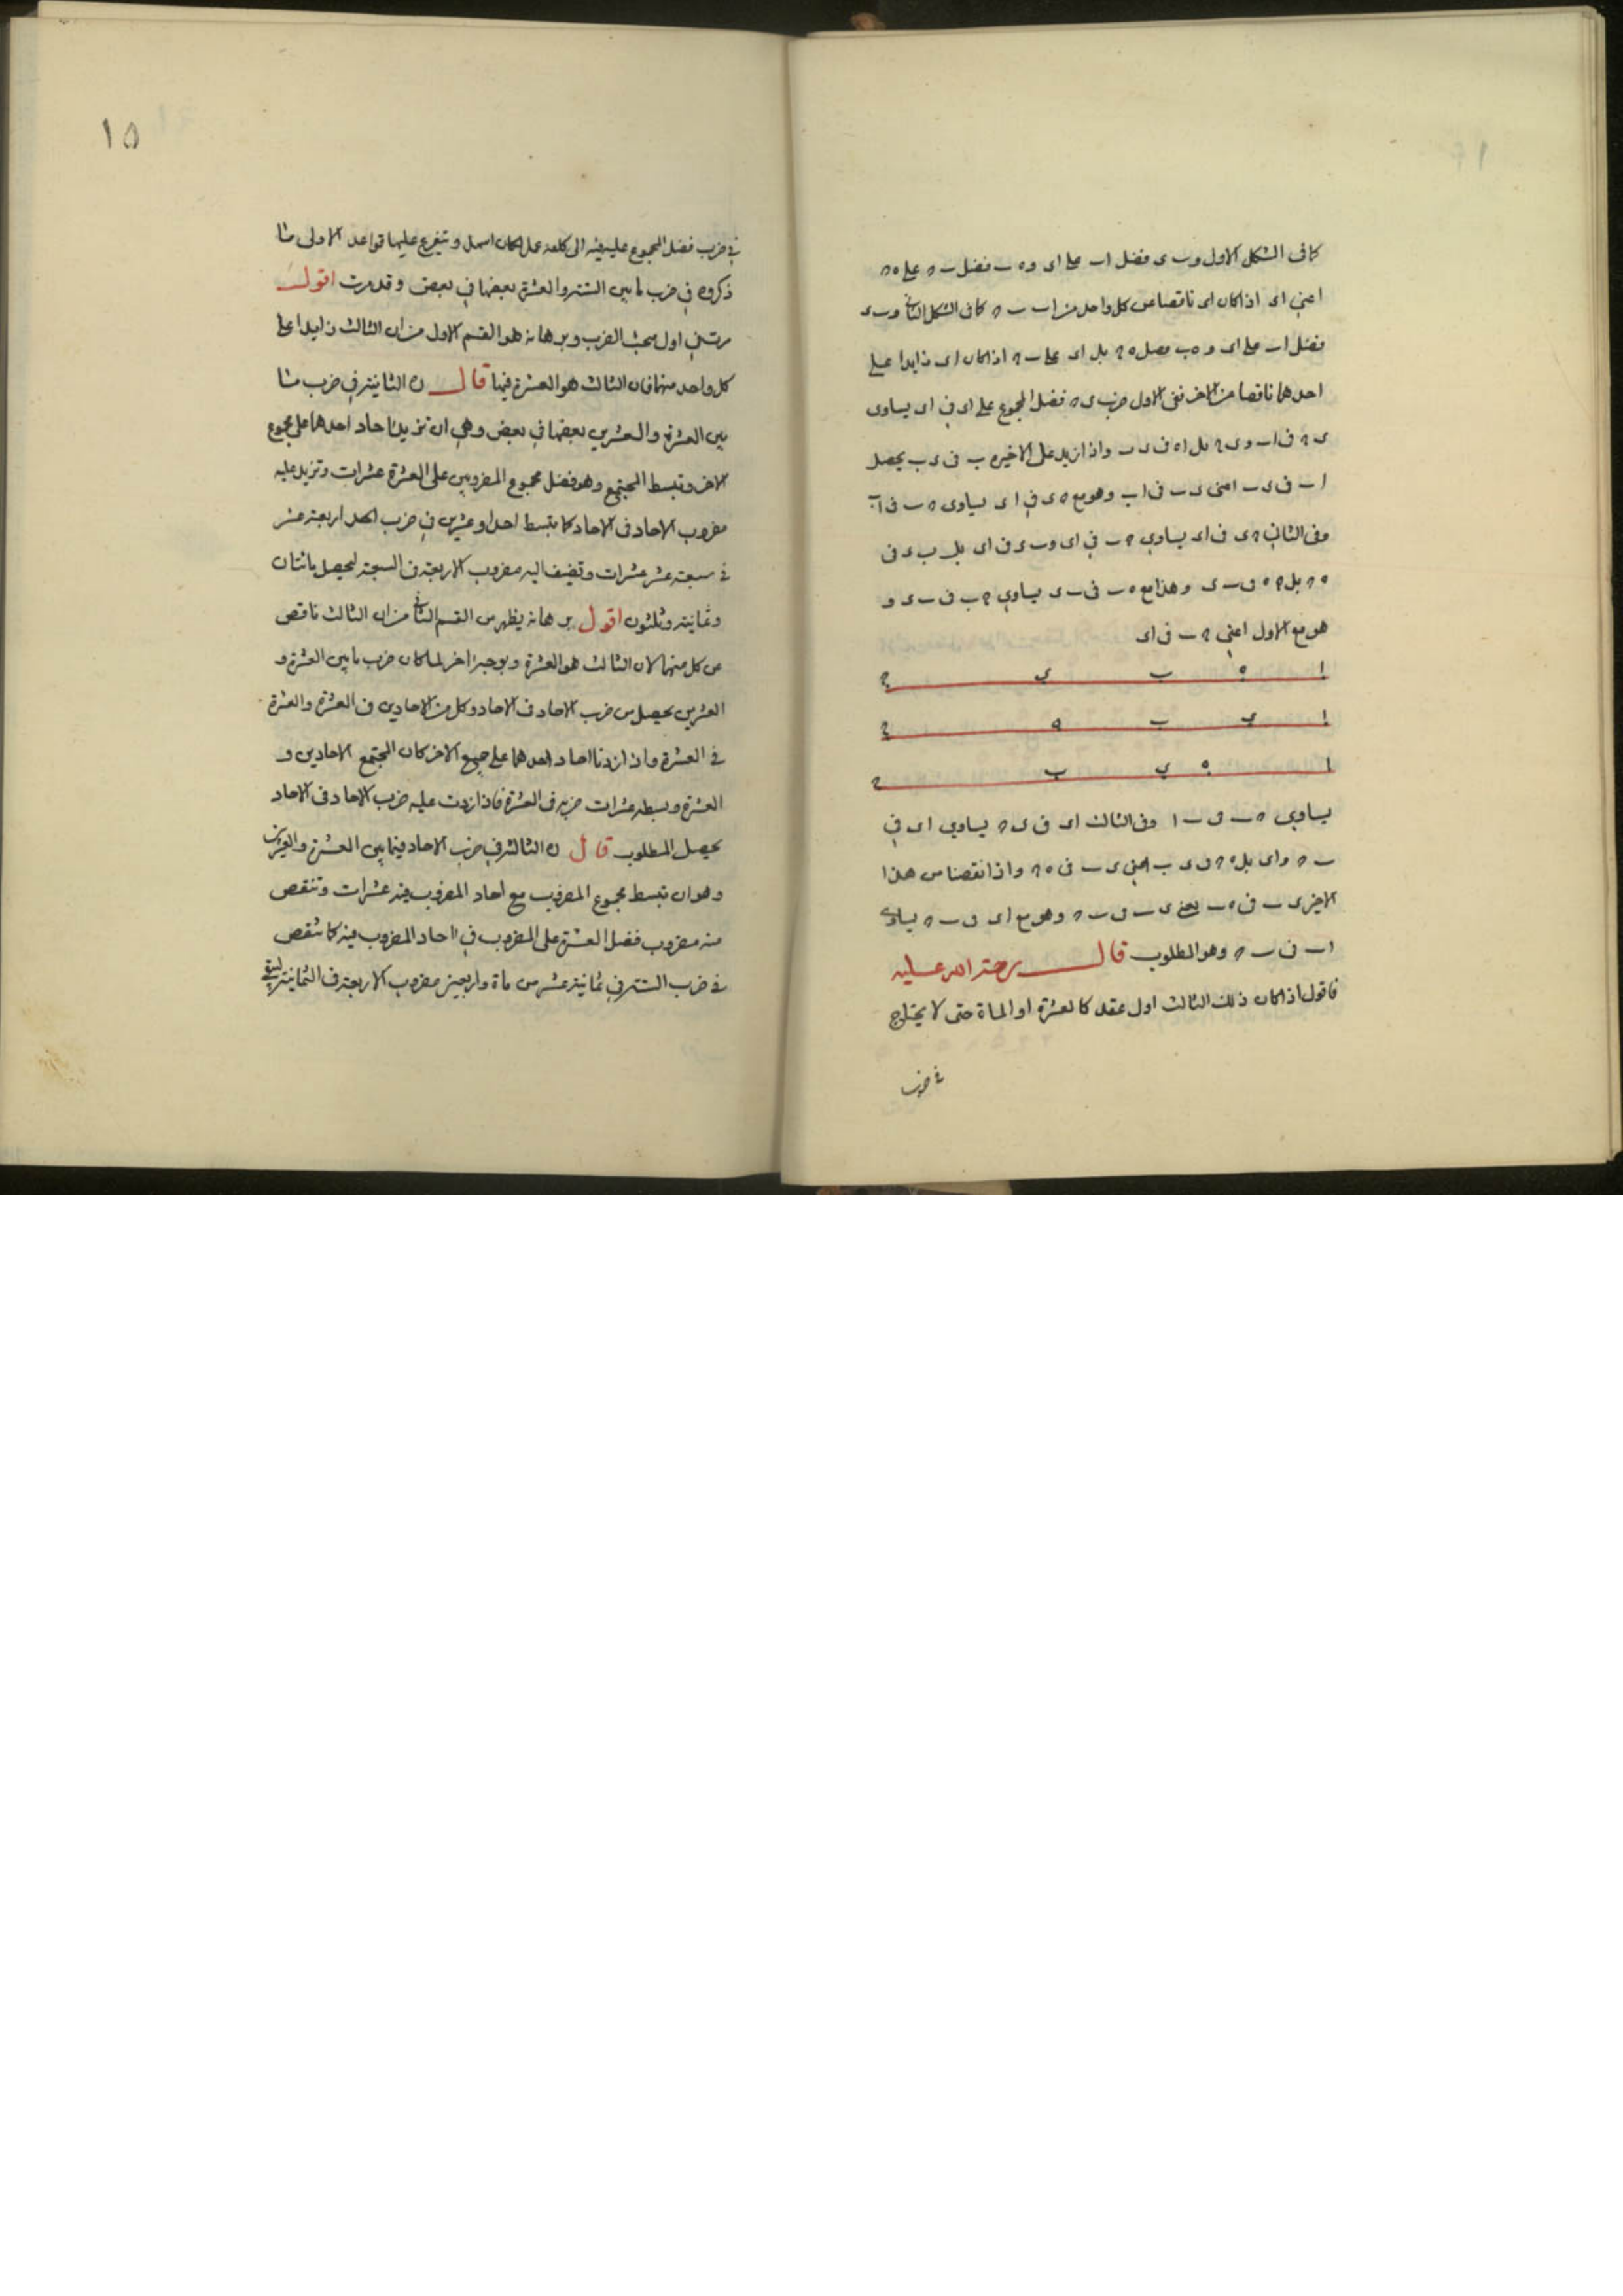 كما فى الشكل الاول و ب ى فضل ا ب على ا ى و ه ب فضل ب ح على ه ح
اعنى ا ى اذا كان ا ى ناقصا عن كل واحد من ا ب ب ح كما فى الشكل الثانى و ب ى
فضل ا ب على ا ى و ه ب فضل ه ح بل ا ى على ب ح اذا كان ا ى زايدا على
احدهما ناقصا من الاخر ففى الاول ضرب ى ح فضل المجموع على ا ى فى ا ى يساوى
ى ح فى ا ب و ى ح بل ا ه فى ى ب واذا زيد على الاخير ه ب فى ى ب يحصل
ا ب فى ى ب اعنى ى ب فى ا ب وهو مع ح ى فى ا ى يساوى ح ب فى ا ب
وفى الثانى ح ى فى ا ى يساوى ح ب فى ا ى و ب ى فى ا ى بل ب ى فى
ه ح بل ح ه فى ب ى وهذا مع ه ب فى ب ى يساوى ح ب فى ب ى و
هو مع الاول اعنى ح ب فى ا ى
ا ه ب ى ح
ا ى ب ه ح
ا ه ى ب ح
يساوى ح ب فى ب ا وفى الثالث ا ى فى ى ح يساوى ا ى فى
ب ح و ا ى بل ه ح فى ى ب اعنى ى ب فى ه ح واذا نقصنا من هذا
الاخير ى ب فى ه ب بقى ى ب فى ب ح وهو مع ا ى فى ب ح يساوى
ا ب فى ب ح وهو المطلوب قال رحمة الله عليه
فاقول اذا كان ذلك الثالث اول عقد كالعشرة او الماة حتى لا يحتاج
فى ضرب
١٥
فى ضرب فضل المجموع عليه فيه الى كلفة عمل كان اسهل و يتفرع عليها قواعد الاولى ما
ذكروه فى ضرب ما بين الستة والعشرة بعضها فى بعض وقد مرت اقول
مرت فى اول مبحث الضرب وبرهانه هو القسم الاول من ان الثالث زايدا على
كل واحد منهما فان الثالث هو العشرة فيها قال ن الثانية فى ضرب ما
بين العشرة والعشرين بعضها فى بعض وهى ان تزيد احاد احدهما على مجموع
الاخر وتبسط المجتمع وهو فضل مجموع المضروبين على العشرة عشرات وتزيد عليه
مضروب الاحاد فى الاحاد كما تبسط احدا وعشرين فى ضرب اربعة عشر
فى سبعة عشر عشرات وتضيف اليه مضروب الاربعة فى السبعة ليحصل مائتان
وثمانية وثلثون اقول برهانه يظهر من القسم الثانى من ان الثالث ناقص
عن كل منهما لان الثالث هو العشرة وبوجه اخر لما كان ضرب ما بين العشرة و
العشرين يحصل من ضرب الاحاد فى الاحاد وكل من الاحادين فى العشرة والعشرة
فى العشرة واذا زدنا احاد احدهما على جميع الاخر كان المجتمع الاحادين و
العشرة وبسطه عشرات ضربه فى العشرة فاذا زدت عليه ضرب الاحاد فى الاحاد
يحصل المطلوب قال ن الثالثة فى ضرب الاحاد فيما بين العشرة والعشرين
وهو ان تبسط مجموع المضروب مع احاد المضروب فيه عشرات وتنقص
منه مضروب فضل العشرة على المضروب فى احاد المضروب فيه كما تنقص
فى ضرب الستة فى ثمانية عشر من ماة واربعين مضروب الاربعة فى الثمانية ليبقى